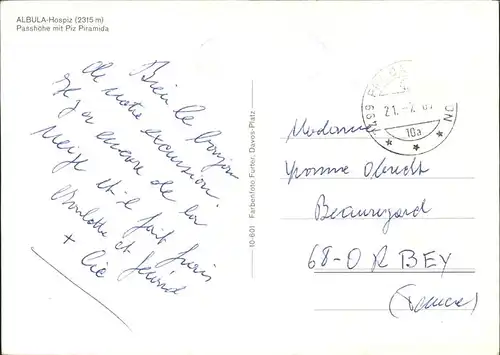 ALBULA-Hospiz (2315 m)
Passhöhe mit Piz Piramida
Bien le bonjour
de notre excursion
il y a encore de la
neige et il fait frais
et Gérard
+ Cie
10-601 Farbenfoto Furter, Davos-Platz
21.-7.
10a
Madame
Yvonne Obrecht
Beauregard
68-ORBEY
(France)